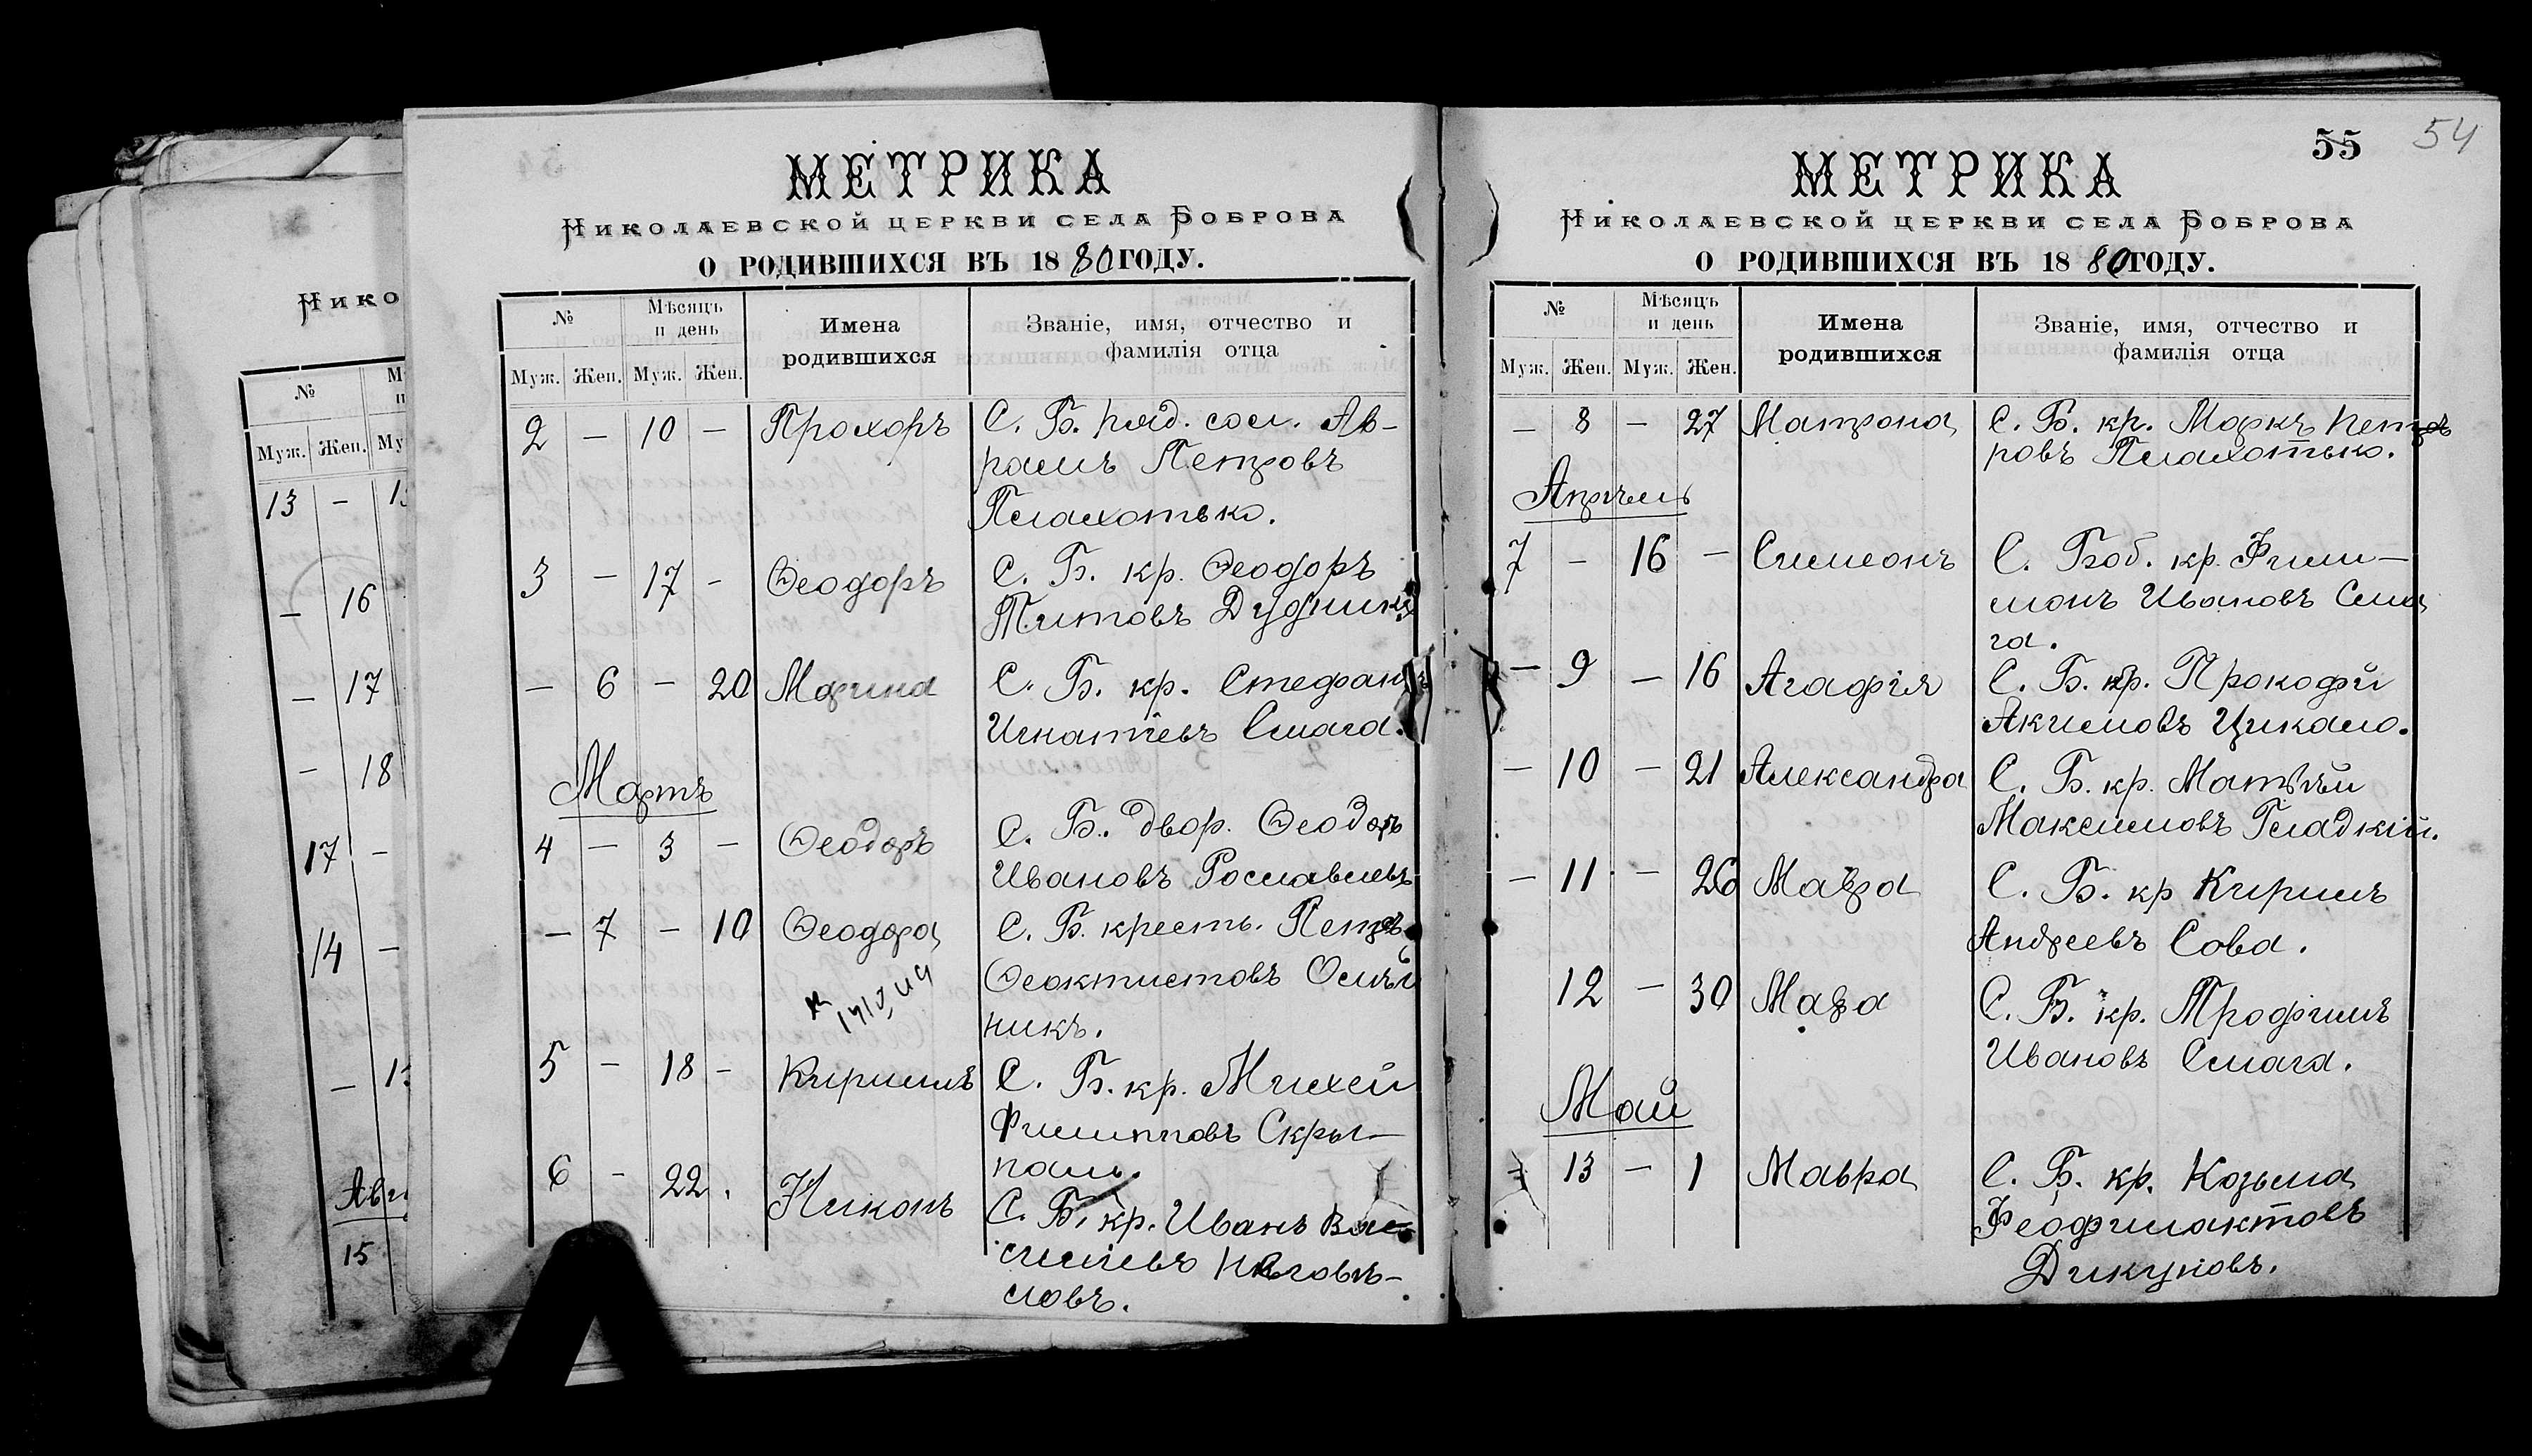 Нико
№
М
Муж. Жен. Му
13 -
- 16
- 17
- 18
17 -
14 -
-
15
МЕТРИКА
Николаевской церкви села Боброва
О РОДИВШИХСЯ ВЪ 1880 ГОДУ.
№
Мѣсяцъ и день
Имена родившихся
Званіе, имя, отчество и фамилія отца
Муж. Жен. Муж. Жен.
2 - 10 - Прохоръ С. Б. ряд. сол. Ав-
рамъ Петровъ
Плахотько.
3 - 17 - Ѳеодоръ С. Б. кр. Ѳеодоръ
Титовъ Дудникъ
- 6 - 20 Марина С. Б. кр. Стефанъ
Игнатіевъ Смага.
Мартъ
4 - 3 - Ѳеодоръ С. Б. двор. Ѳеодоръ
Ивановъ Рославлевъ
- 7 - 10 Ѳеодора С. Б. кресть. Петръ
Ѳеоктистовъ
никъ.
5 - 18 - Кириллъ С. Б. кр. Михей
Филипповъ Скры-
паль.
6 - 22. Никонъ С. Б. кр. Иванъ Ва-
силіевъ
ловъ.
55 54
МЕТРИКА
Николаевской церкви села Боброва
О РОДИВШИХСЯ ВЪ 1880 ГОДУ.
№
Мѣсяцъ и день
Имена родившихся
Званіе, имя, отчество и фамилія отца
Муж. Жен. Муж. Жен.
- 8 - 27 Матрона С. Б. кр. Маркъ Пет
ровъ Плахотько.
Апрѣль
7 - 16 - Симеонъ С. Боб. кр. Фили-
монъ Ивановъ Сма
га.
- 9 - 16 Агафія С. Б. кр. Прокофій
Акимовъ Цикало.
- 10 - 21 Александра С. Б. кр. Матвѣй
Максимовъ Гладкій.
- 11 - 26 Мавра С. Б. кр Кириллъ
Андреевъ Сова.
12 - 30 Мавра С. Б. кр. Трофимъ
Ивановъ Смага.
Май
- 13 - 1 Мавра С. Б. кр. Козьма
Феофилактовъ
Дикуновъ.